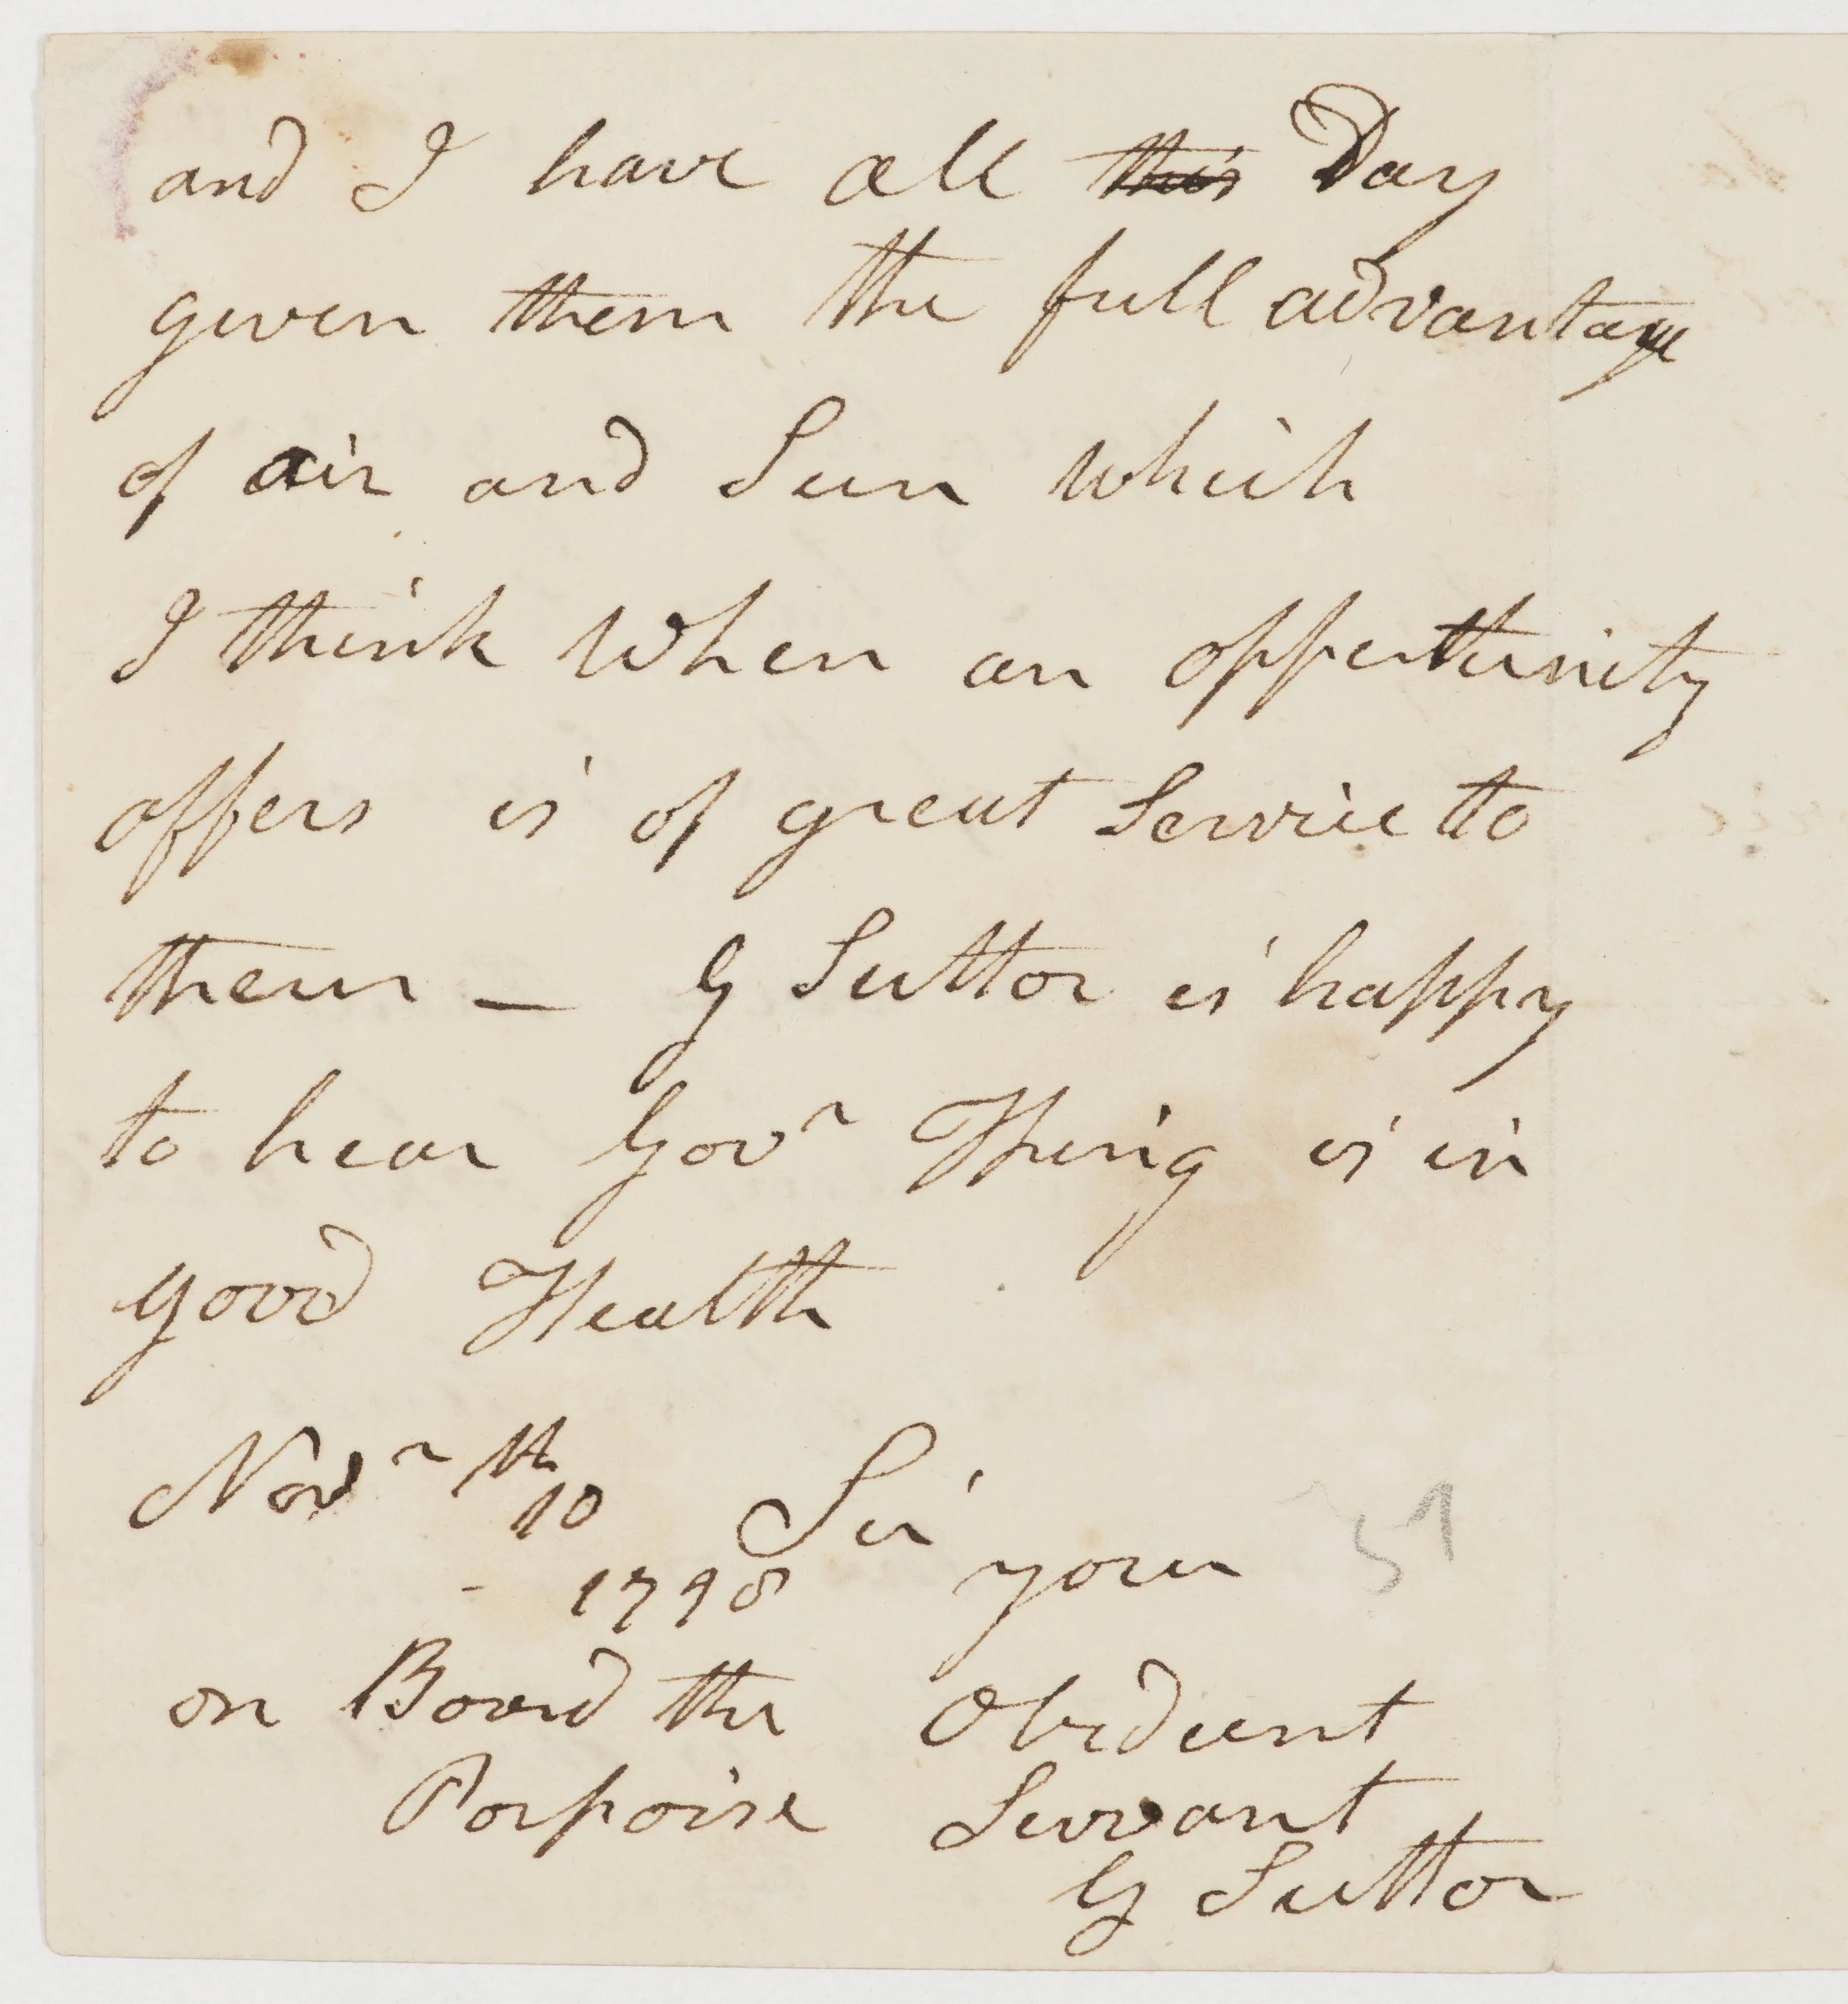 and I have all this Day
given them the full advantage
of air and Sun which
I think when an oppertunity
offers is of great Service to
them — G Suttor is happy
to hear Govr King is in
good Health
Novr 10th Sir
- 1798 your
on Board the Obedient
Porpoise Servant
G Suttor
51